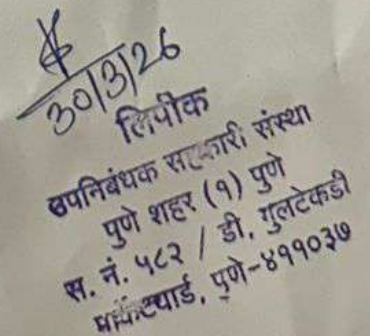 30/3/26
लिपीक
उपनिबंधक सहकारी संस्था
पुणे शहर (१) पुणे
स. नं. ५८२ / डी, गुलटेकडी
मार्केटयार्ड, पुणे-४११०३७